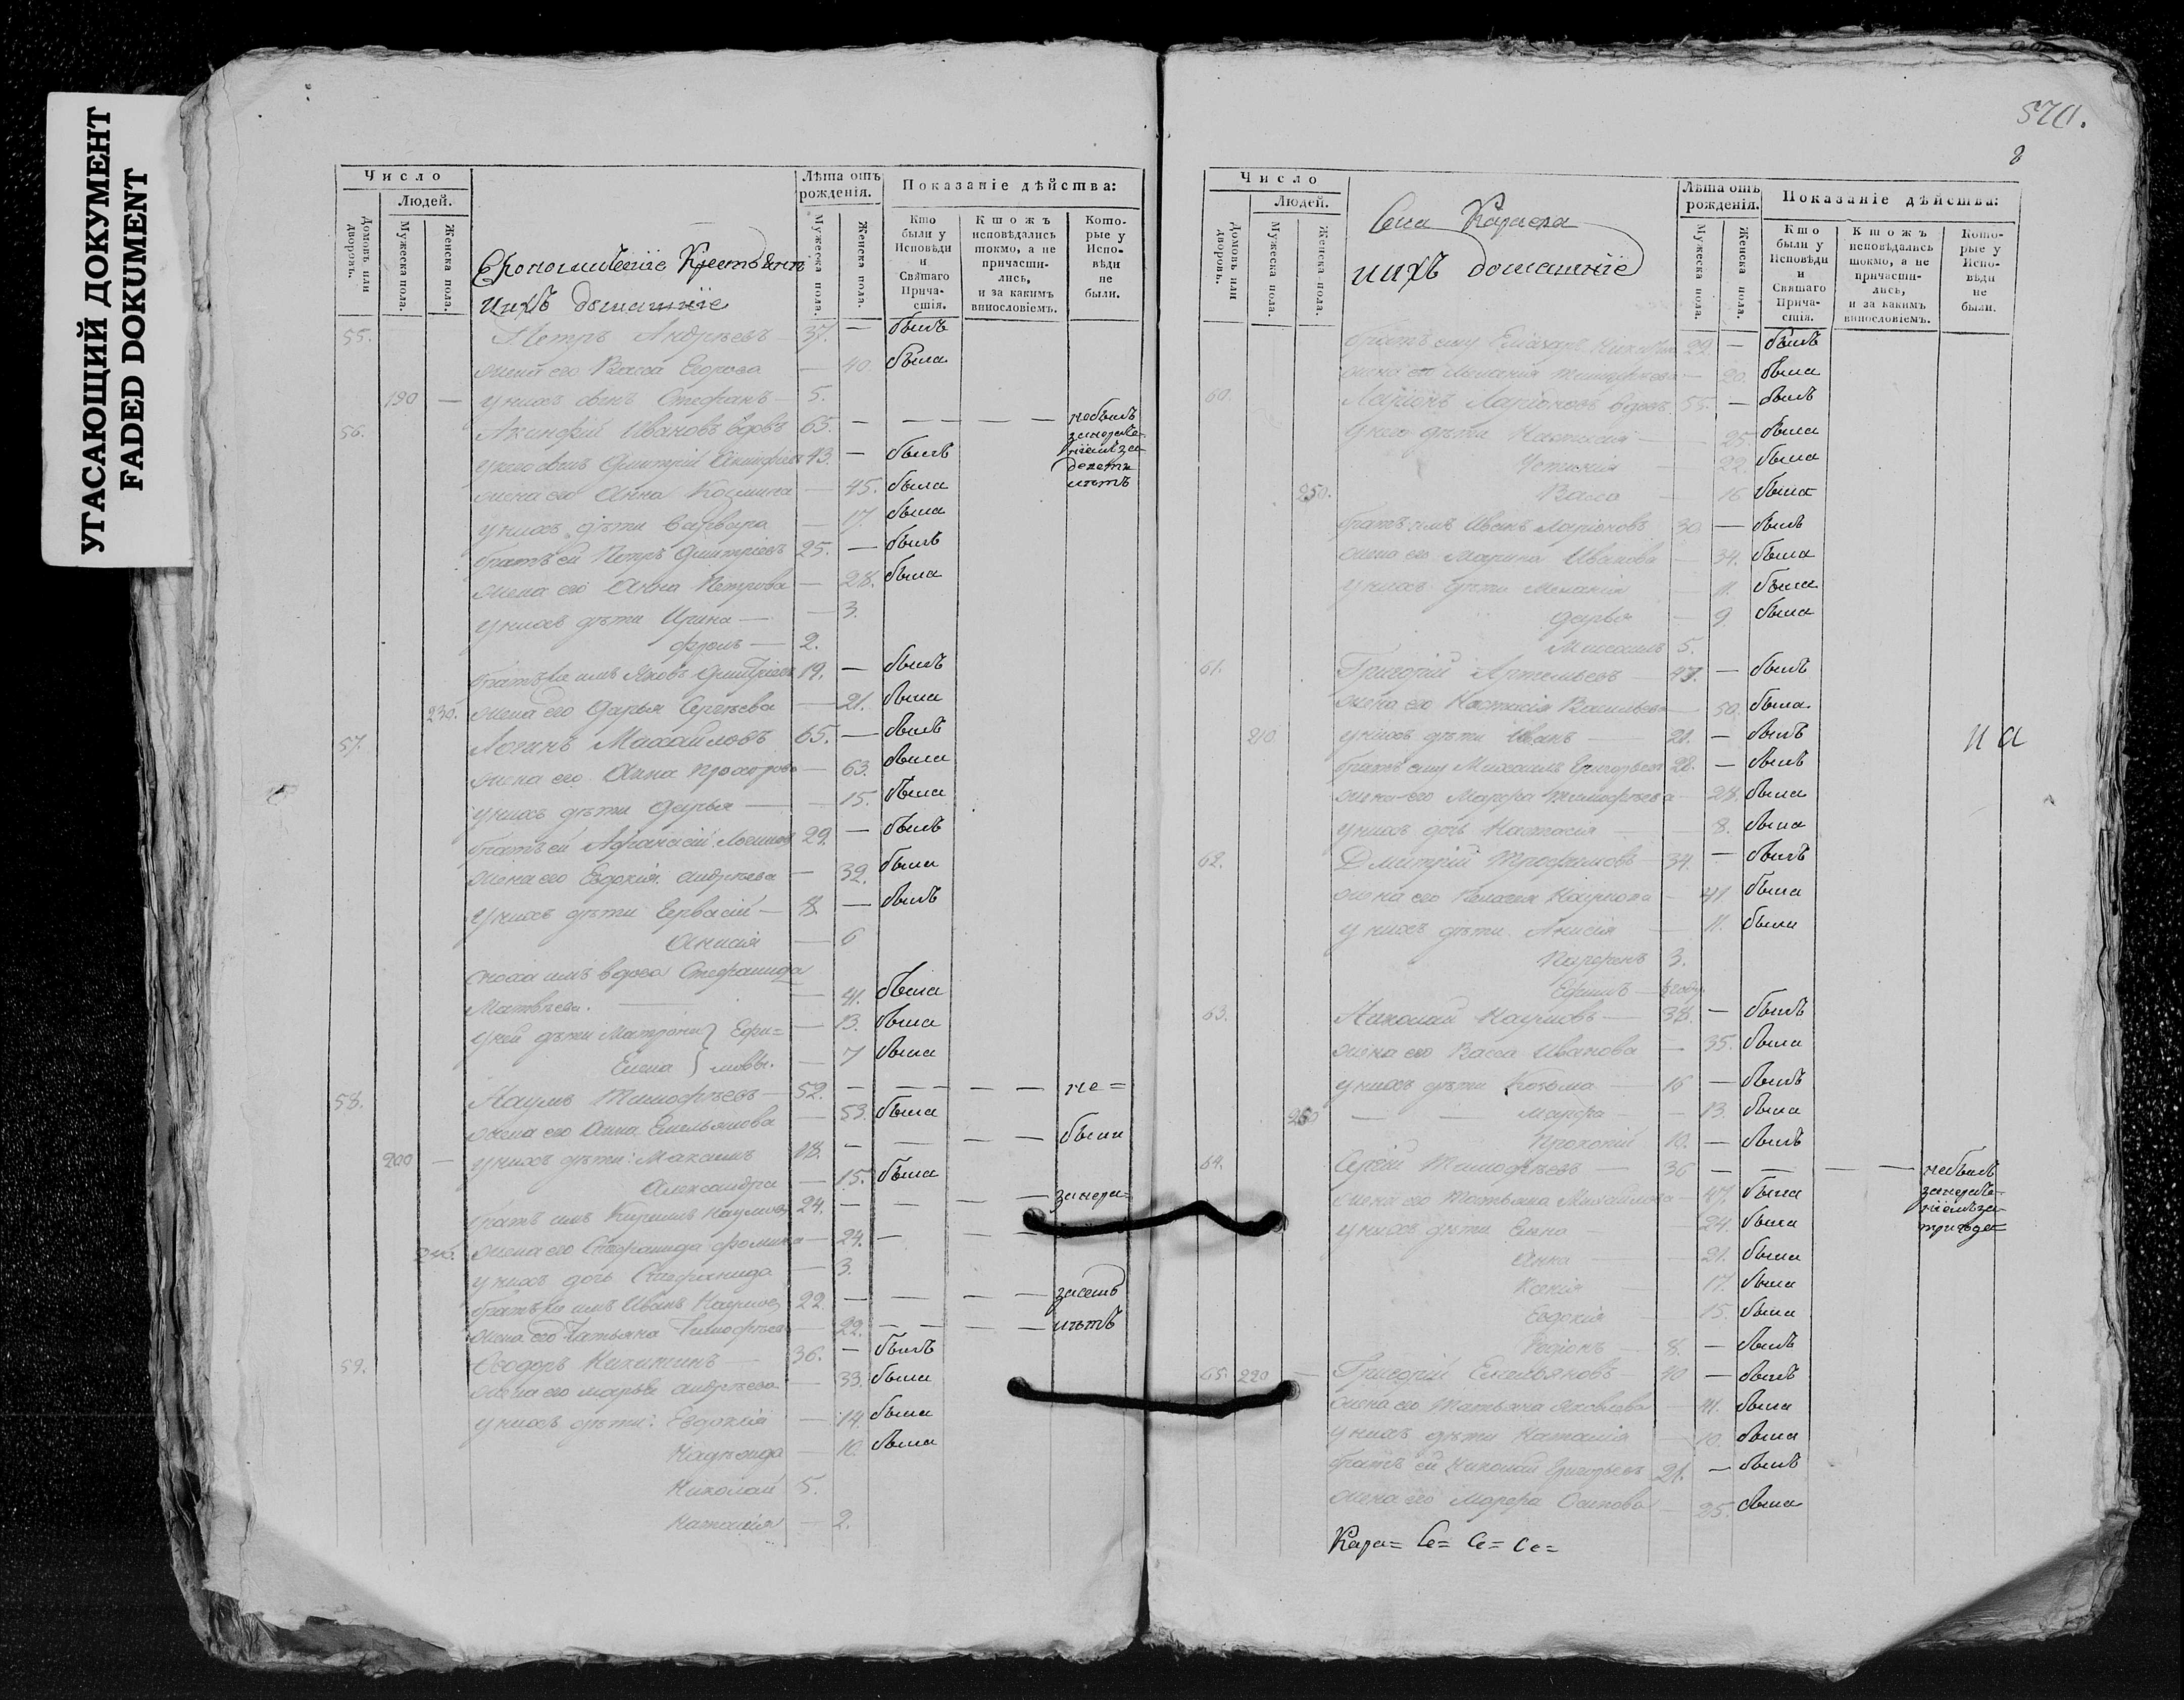 УГАСАЮЩИЙ ДОКУМЕНТ
FADED DOKUMENT
Число
Людей.
Домовъ или дворовъ.
Мужеска пола.
Женска пола.
Економическіе Крестьяне
ихъ домашніе
Лѣта отъ рожденія.
Мужеска пола.
Женска пола.
Показаніе дѣйства:
Кто были у Исповѣди и Святаго Причастія.
Ктожъ исповѣдались токмо, а не причастились, и за какимъ винословіемъ.
Которые у Исповѣди не были.
55. Петръ Андрѣевъ 37. — былъ
жена его Васса Егорова — 40. была
190 — у нихъ сынъ Стефанъ — 5.
56. Акинфій Ивановъ вдовъ 65. — — — — небылъ
у него сынъ Дмитрій Акинфіевъ 43. — былъ
жена его Анна Козмина — 45. была
у нихъ дѣти Варвара — 17. была
братъ ей Петръ Дмитріевъ 25. — былъ
жена его Анна Петрова — 28. была
у нихъ дѣти Ирина — 3.
Фролъ — 2.
братъ же имъ Яковъ Дмитріевъ 19. — былъ
230. жена его Дарья Сергѣева — 21. была
57. Логинъ Михайловъ 65. — былъ
жена его Анна Прохорова — 63. была
у нихъ дѣти Дарья — 15. была
братъ ей Афанасій Логиновъ 29. — былъ
жена его Евдокія Андрѣева — 32. была
у нихъ дѣти Гервасій — 8. — былъ
Анисія — 6
сноха имъ вдова Стефанида
Матвѣева. — 41. была
у ней дѣти Матрона } Ефи= — 13. была
Елена } мовы. — 7 была
58. Наумъ Тимофѣевъ — 52. — — — — не=
жена его Анна Емельянова — 53. была
200 — у нихъ дѣти: Максимъ 18. — — — были
Александра — 15. была
братъ имъ Кирилъ Наумовъ 24. — — — занера=
240. жена его Стефанида Фомина — 24. — —
у нихъ дочь Стефанида — 3.
братъ же имъ Иванъ Наумовъ 22. — — —
жена его Татьяна Тимофѣева — 22. — — — нѣтъ
59. Феодоръ Никитинъ — 36. — былъ
жена его Марья Андрѣева — 33. была
у нихъ дѣти: Евдокія — 14. была
Надежда — 10. была
Николай 5.
Наталія — 2.
570.
8
Число
Людей.
Домовъ или дворовъ.
Мужеска пола.
Женска пола.
Села Караева
ихъ домашніе
Лѣта отъ рожденія.
Мужеска пола.
Женска пола.
Показаніе дѣйства:
Кто были у Исповѣди и Святаго Причастія.
Ктожъ исповѣдались токмо, а не причастились, и за какимъ винословіемъ.
Которые у Исповѣди не были.
братъ ему Еліазаръ Никитинъ 22. — былъ
жена его Меланія Тимофѣева — 20. была
60. Ларіонъ Ларіоновъ вдовъ 55. — былъ
у него дѣти Настасія — 25. была
Устинія 22. была
250. Васса — 16 была
братъ имъ Иванъ Ларіоновъ 30. — былъ
жена его Марина Иванова — 34. была
у нихъ дѣти Меланія 11. была
Дарья — 9. была
Михаилъ 5.
61. Григорій Артемьевъ — 47. — былъ
жена его Настасія Васильева — 50. была
210 у нихъ дѣти Иванъ — 21. — былъ
братъ ему Михаилъ Григорьевъ 28. — былъ
жена его Марфа Тимофѣева — 28. была
у нихъ дочь Настасія 8. была
62. Дмитрій Трофимовъ — 34. — былъ
жена его Пелагея Наумова — 41 была
у нихъ дѣти Анисія 11. была
Парфенъ 3.
Ефимъ
63. Николай Наумовъ — 38. — былъ
жена его Васса Иванова — 35. была
у нихъ дѣти Козьма — 16 — былъ
260 — — Марфа — 13. была
Прокопій 10. — былъ
64. Сергій Тимофѣевъ — 36 — — — — небылъ
жена его Татьяна Михайлова — 47. была
у нихъ дѣти Анна — 24. была
Анна — 21. была
Ксенія 17. была
Евдокія 15. была
Родіонъ — 8. — былъ
65. 220 — Григорій Емельяновъ — 40 — былъ
жена его Татьяна Яковлева — 41. была
у нихъ дѣти Наталія 10. была
братъ ей Николай Григорьевъ 21. — былъ
жена его Марфа Осипова — 25. была
на
Кара= Се= Се= Се=